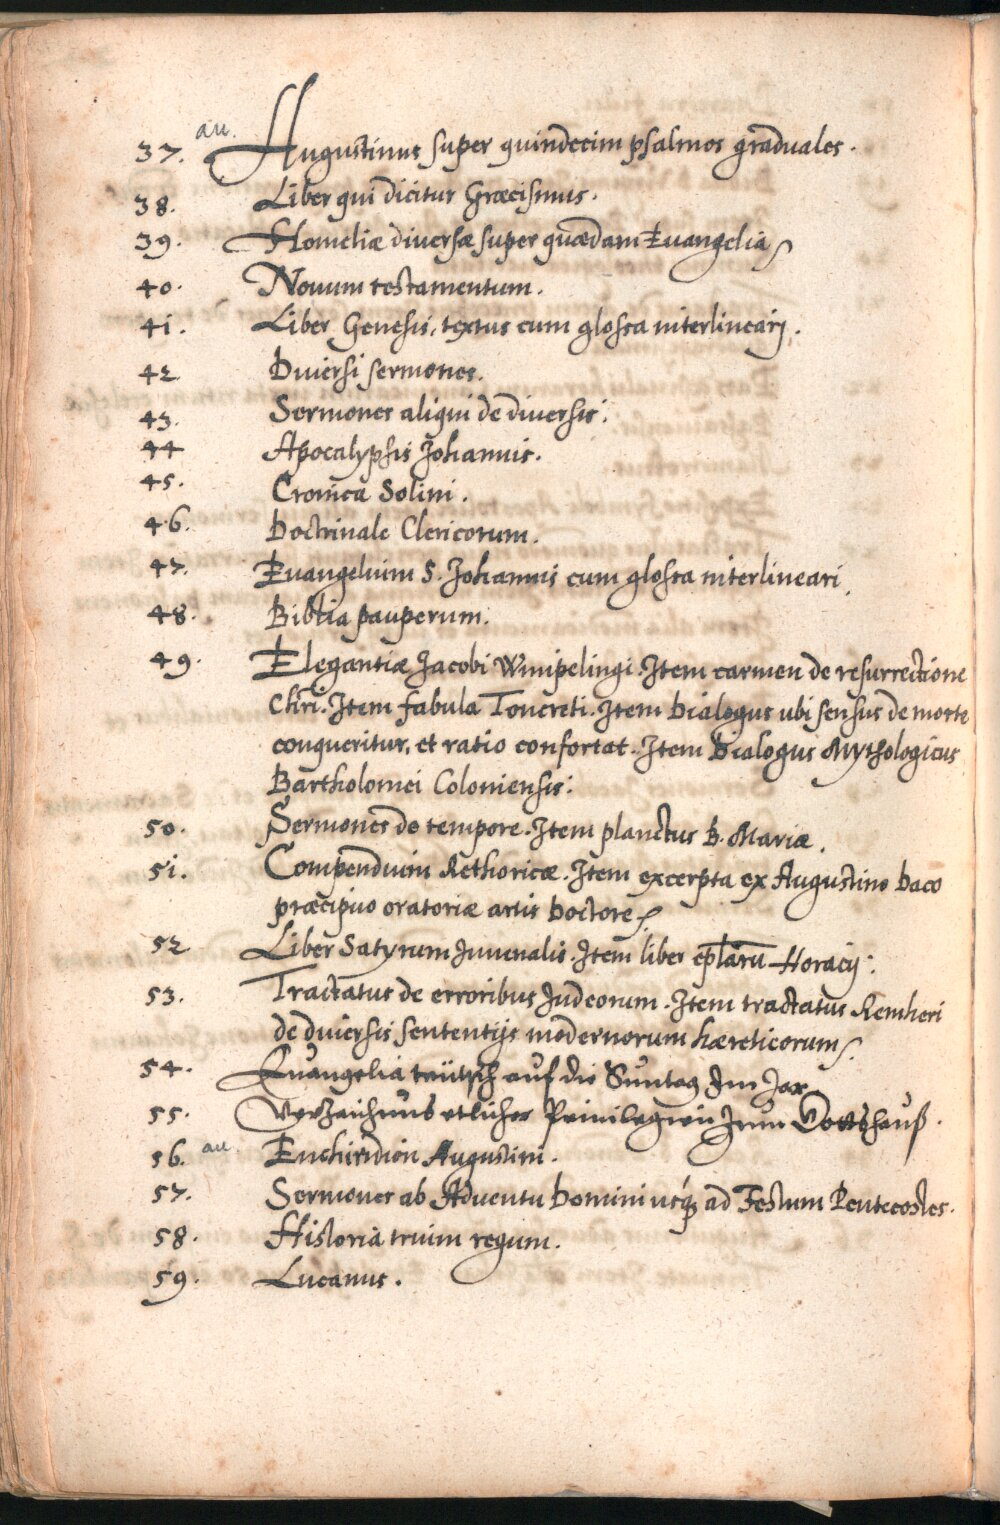 37. au. Augustinus super quindecim psalmos graduales.
38. Liber qui dicitur Græcismus.
39. Homeliæ diversæ super quædam Evangelia
40. Novum testamentum.
41. Liber Genesis, textus cum glossa interlinearj.
42 Diversi sermones.
43. Sermones aliqui de diversis:
44 Apocalypsis Johannis.
45. Cronica Solini.
46. Doctrinale Clericorum.
47. Evangelium S. Johannis cum glossa interlineari.
48. Biblia pauperum.
49. Elegantiæ Jacobi Wimpelingi. Item carmen de resurrectione
Chri. Item fabula Toncreti. Item Dialogus ubi sensus de morte
conqueritur, et ratio confortat. Item Dialogus Mythologicus
Bartholomei Coloniensis:
50. Sermones de tempore. Item planctus B. Mariæ.
51. Compendium Rethoricæ. Item excerpta ex Augustino Daco
præcipuo oratoriæ artis Doctore
52 Liber Satyrum Juvenalis. Item liber eplarū Horacij:
53. Tractatus de erroribus Judeorum. Item tractatus Remheri
de diversis sententijs modernorum hæreticorum
54. Evangelia teütsch auf die Suntag Im Jar
55. Verzaichnus etlicher Privilegien zum Gottshauß.
56. au. Enchiridion Augustini.
57. Sermones ab Adventu Domini usq; ad Festum Pentecostes.
58. Historia trium regum.
59. Lucanus.